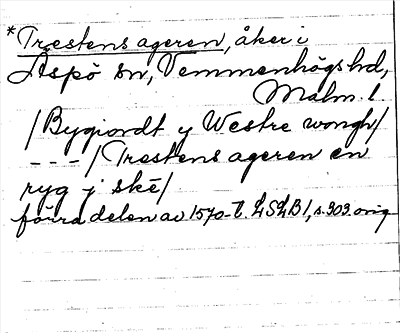 *Trestens ageren, åker i
Äspö sn, Vemmenhögs hd,
Malm. l.
/Bygiordt y Westre wongh/
---/Trestens ageren en
ryg j skĕ/
förra delen av 1570-t. LSLB 1, s. 303. orig